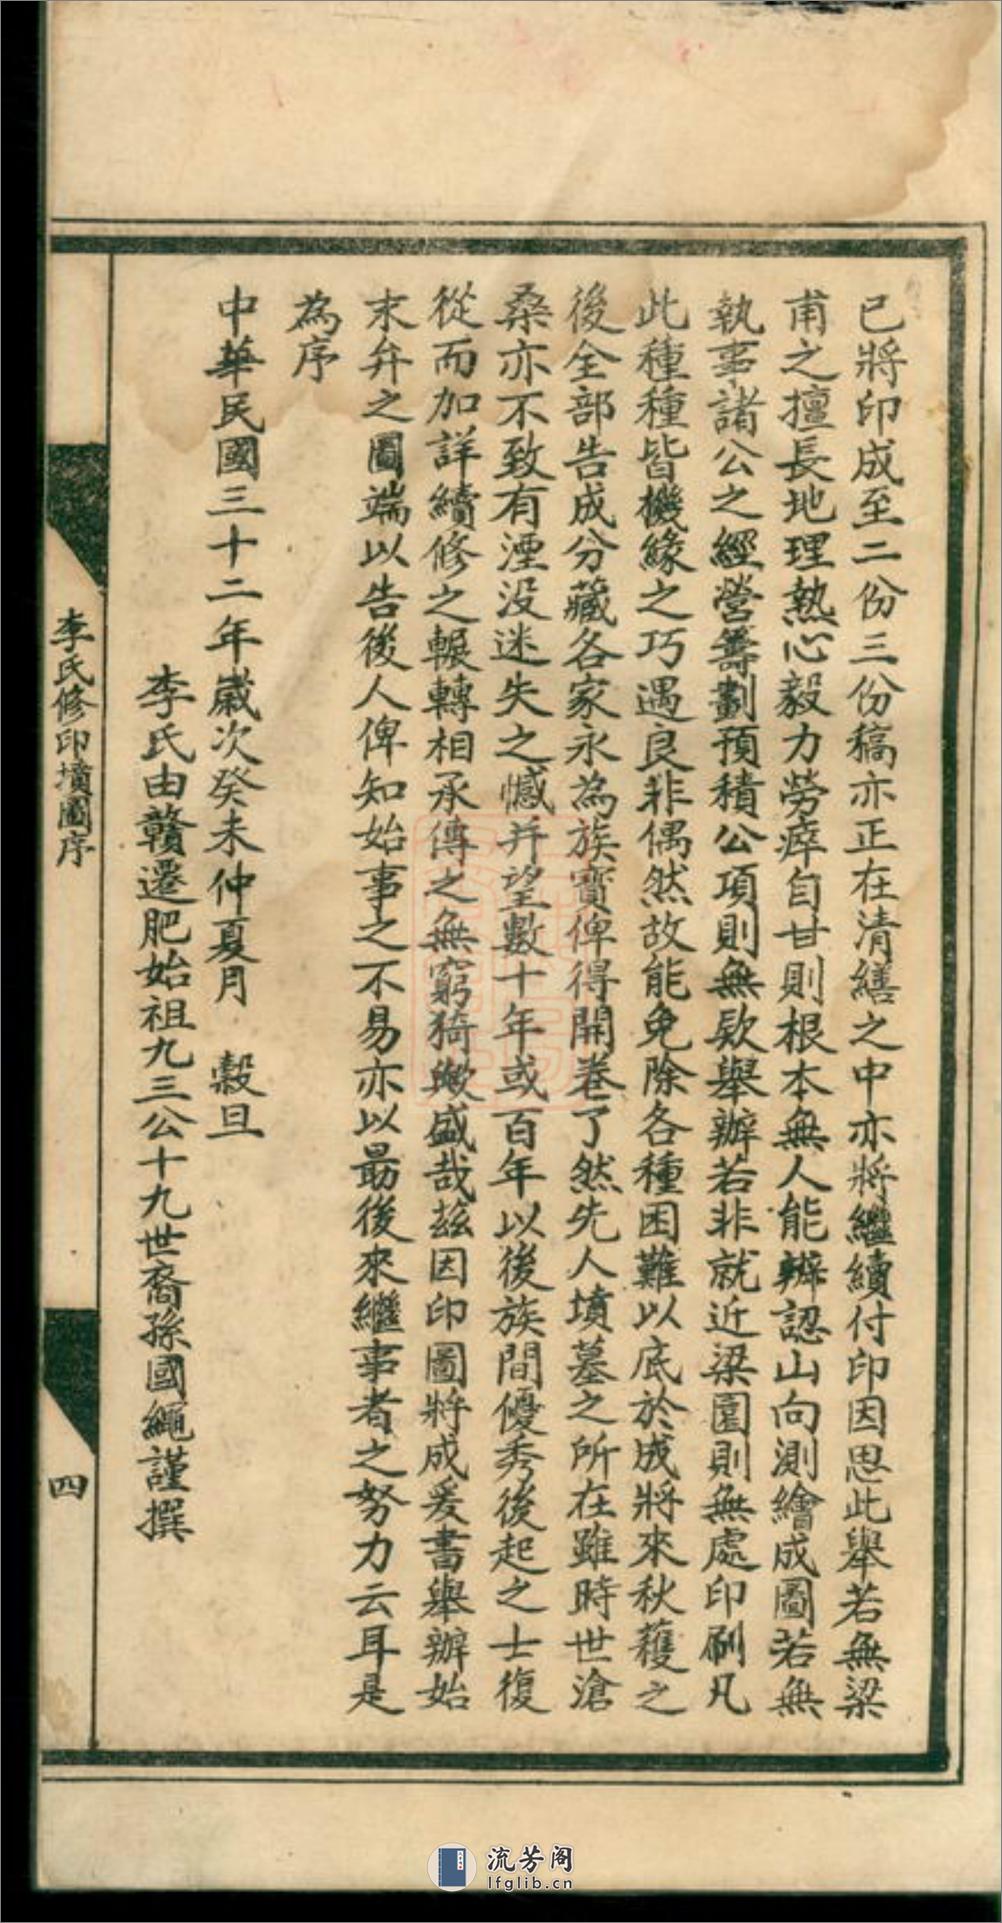 已將印成至二份三份稿亦正在清繕之中亦將繼續付印因思此舉若無梁
甫之擅長地理熱心毅力勞瘁自甘則根本無人能辨認山向測繪成圖若無
執事諸公之經營籌劃預積公項則無款舉辦若非就近梁園則無處印刷凡
此種種皆機緣之巧遇良非偶然故能免除各種困難以底於成將來秋穫之
後全部告成分藏各家永為族寶俾得開卷了然先人墳墓之所在雖時世滄
桑亦不致有湮没迷失之憾并望數十年或百年以後族間優秀後起之士復
從而加詳續修之輾轉相承傳之無窮猗歟盛哉茲因印圖將成爰書舉辦始
末弁之圖端以告後人俾知始事之不易亦以最後來繼事者之努力云耳是
為序
中華民國三十二年歲次癸未仲夏月 穀旦
李氏由贛遷肥始祖九三公十九世裔孫國繩謹撰
李氏修印墳圖序
四
流芳阁
lfglib.cn